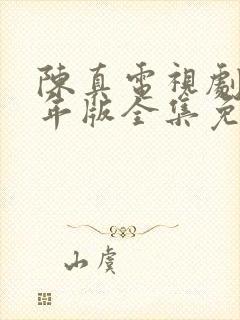 陳真電視劇
年版全集免
山虞